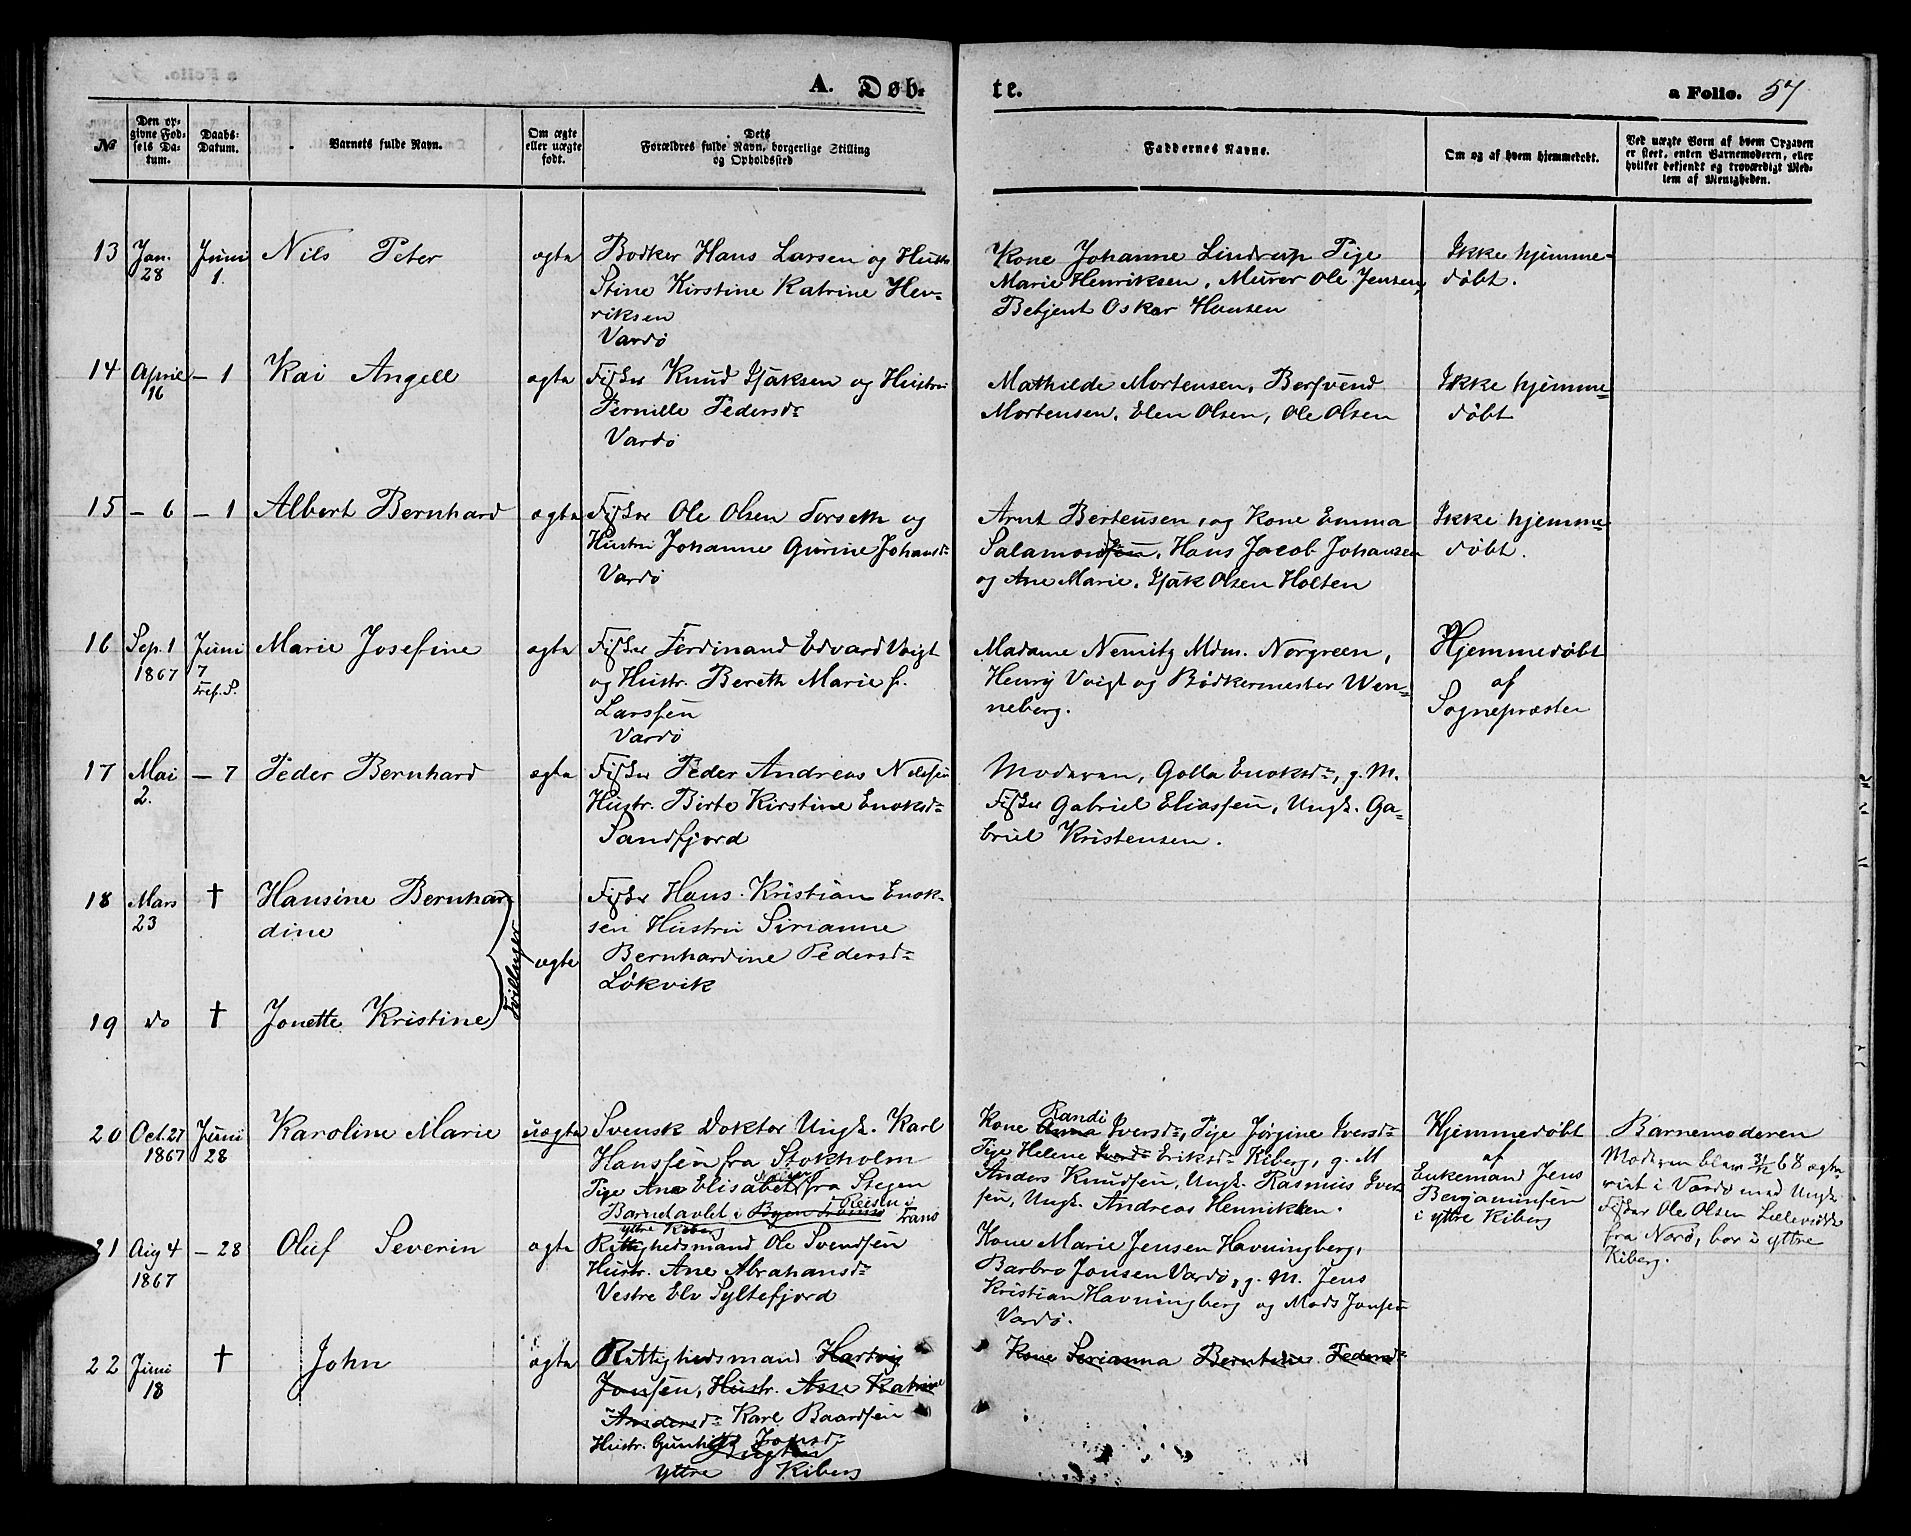 A. Døb-
te.
a Folio. 57
No
Den op-
givne Fød-
sels Da-
tum.
Daabs-
Datum.
Barnets fulde Navn.
Om ægte
eller uægte
født.
Dets
Forældres fulde Navn, borgerlige Stilling
og Opholdssted
Faddernes Navne.
Om og af hvem hjemmedøbt.
Ved uægte Børn af hvem Opgaven
er skeet, enten Barnemoderen, eller
hvilket bekjendt og troværdigt Med-
lem af Menigheden.
13 Jan. 28 Juni 1. Nils Peter ægte
Bødker Hans Larsen og Hustr
Stine Kirstine Katrine Hen-
riksen
Vardø
Kone Johanne Lindrup Pige
Marie Henriksen, Murer Ole Jensen,
Betjent Oskar Hansen
Ikke hjemme-
døbt.
14 April 16 – 1 Kai Angell ægte
Fisker Knud Isaksen og Hustru
Pernille Pedersd.
Vardø
Mathilde Mortensen, Bersvend
Mortensen, Elen Olsen, Ole Olsen
Ikke hjemme-
døbt
15 – 6 – 1 Albert Bernhard ægte
Fisker Ole Olsen Forseth og
Hustru Johanne Gurine Johansd.
Vardø
Arnt Bertensen, og Kone Emma
Salamonsen, Hans Jacob Johansen
og Ane Marie, Isak Olsen Holten
Ikke hjemme-
døbt.
16 Sep. 1 1867 Juni 7 Marie Josefine ægte
Fisker Ferdinand Edvard Voigt
og Hustr. Bereth Marie f.
Larssen
Vardø
Madame Nemitz Mdm. Norgreen,
Henry Voigt og Bødkermester Wen-
neberg.
Hjemmedøbt
af
Sognepræsten
17 Mai 2. – 7 Peder Bernhard ægte
Fisker Peder Andreas Nilssen
Hustr. Birte Kirstine Enoksd.
Sandfjord
Moderen, Golla Enoksd., g. M.
Fisker Gabriel Eliassen, Ungk. Ga-
briel Kristensen.
18 Mars 23 † Hansine Bernhar-
dine
Tvillinger
ægte
Fisker Hans Kristian Enok-
sen Hustru Sirianne
Bernhardine Pedersd.
Løkvik
19 do † Jonette Kristine
20 Oct. 27 1867 Juni 28 Karoline Marie uægte
Svensk Doktor Ungk. Karl
Hanssen fra Stokholm
Pige Ane Elisabet fra Stegen
Barnet avlet i Reisen i
Trans
yttre Kiberg
Kone Randi Iversd., Pige Jørgine Iversd.
Pige Helene Eriksd. Kiberg, g. M
Anders Knudsen, Ungk. Rasmus Iver-
sen, Ungk. Andreas Henriksen.
Hjemmedøbt
af
Enkemand Jens
Benjaminsen
i yttre Kiberg
Barnemoderen
Moderen blev 31/12 68 ægte
viet i Vardø med Ungk.
Fisker Ole Olsen
fra Norø, bor i yttre
Kiberg.
21 Aug 4 1867 – 28 Oluf Severin ægte
Rettighedsmand Ole Svendsen
Hustr. Ane Abrahamsd.
Vestre Elv Syltefjord
Kone Marie Jensen Havningberg,
Barbro Jonsen Vardø, g. M. Jens
Kristian Havningberg og Mads Jonsen
Vardø.
22 Juni 18 † John ægte
Rettighedsmand Hartvig
Jonsen, Hustr. Ane Katrine
Andersd. Karl Baardsen
Hustr. Gunhild Jonsd.
yttre Kiberg
Kone Serianna Berntine Pedersd.